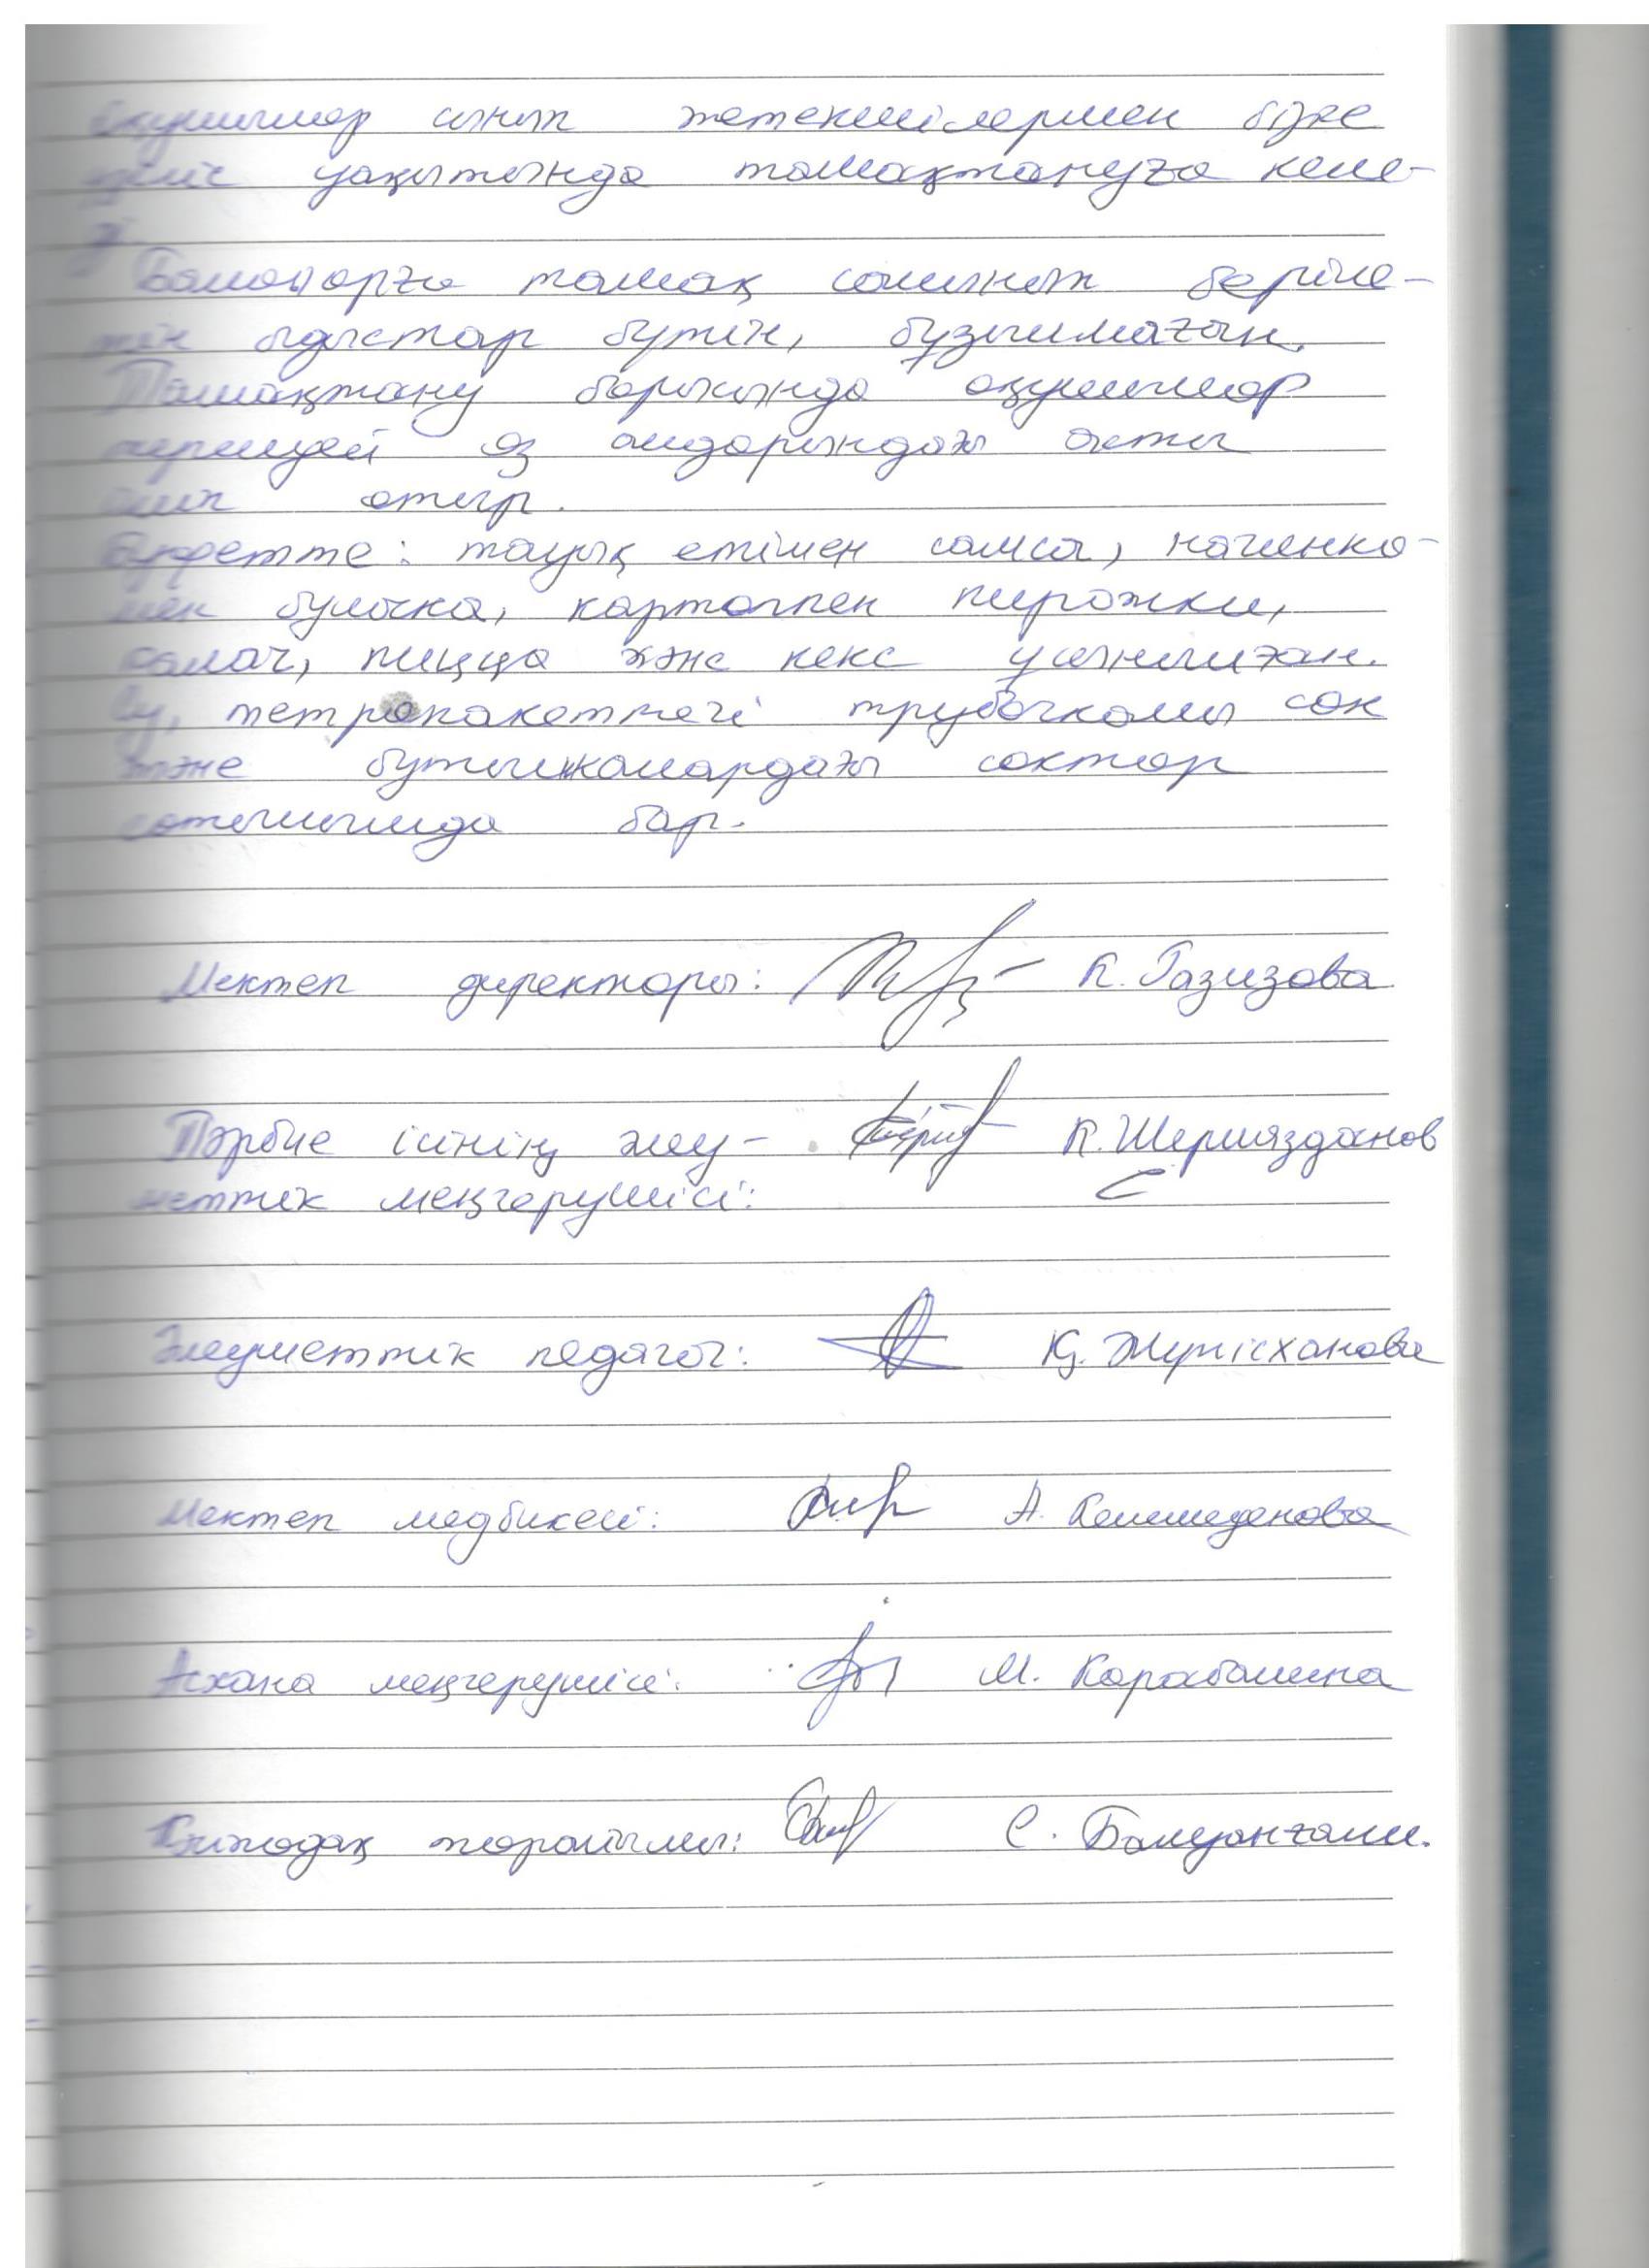 Оқушылар сынып жетекшілермен бірге
үзіліс уақытында тамақтануға келе-
ді.
Балаларға тамақ салынып беріле-
тін ыдыстар бүтін, бұзылмаған.
Тамақтану барысында оқушылар
өз алдарындағы асты
ішіп отыр.
Буфетте: тауық етімен самса, начинка-
мен булочка, картоппен пирожки,
калач, пицца және кекс ұсынылған.
Су, тетропакеттегі трубочкалы сок
және бутылкалардағы соктар
сатылымда бар.
Мектеп директоры: К. Газизова
Тәрбие ісінің әлеу-
меттік меңгерушісі: К. Шериязданов
Әлеуметтік педагог: Қ. Жүнісханова
Мектеп медбикесі: А.
Асхана меңгерушісі: М. Карабалина
Кәсіподақ төрайымы: С. Бауланғали.